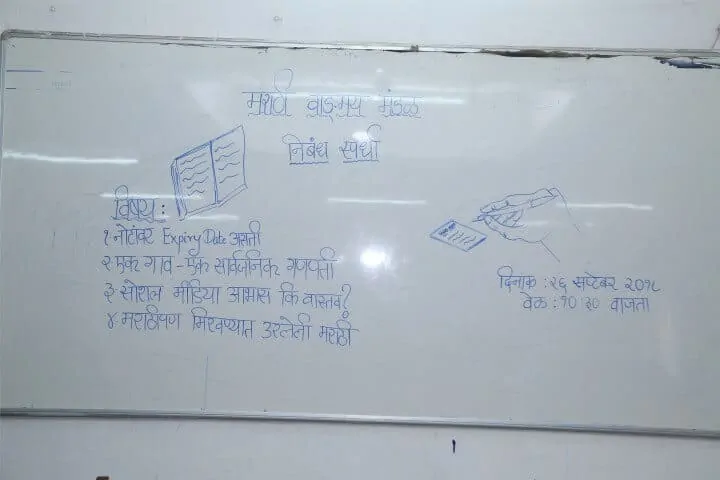 मराठी वाङ्मय मंडळ
निबंध स्पर्धा
विषय :
१ नोटांवर Expiry Date असती
२ एक गाव - एक सार्वजनिक गणपती
३ सोशल मीडिया आभास कि वास्तव?
४ मराठीपण मिरवण्यात उरलेली मराठी
दिनांक : २६ सप्टेंबर २०१८
वेळ : १० ३० वाजता